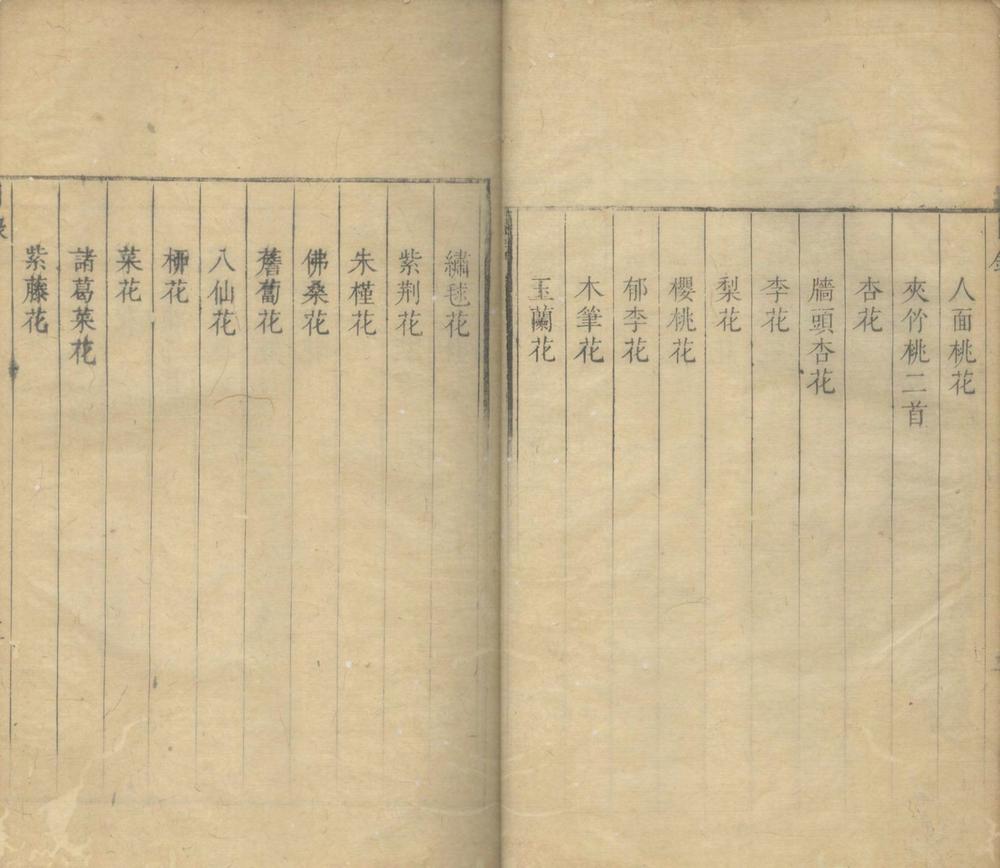 人面桃花
夾竹桃二首
杏花
牆頭杏花
李花
梨花
櫻桃花
郁李花
木筆花
玉蘭花
繡毬花
紫荆花
朱槿花
佛桑花
薝蔔花
八仙花
栁花
菜花
諸葛菜花
紫藤花